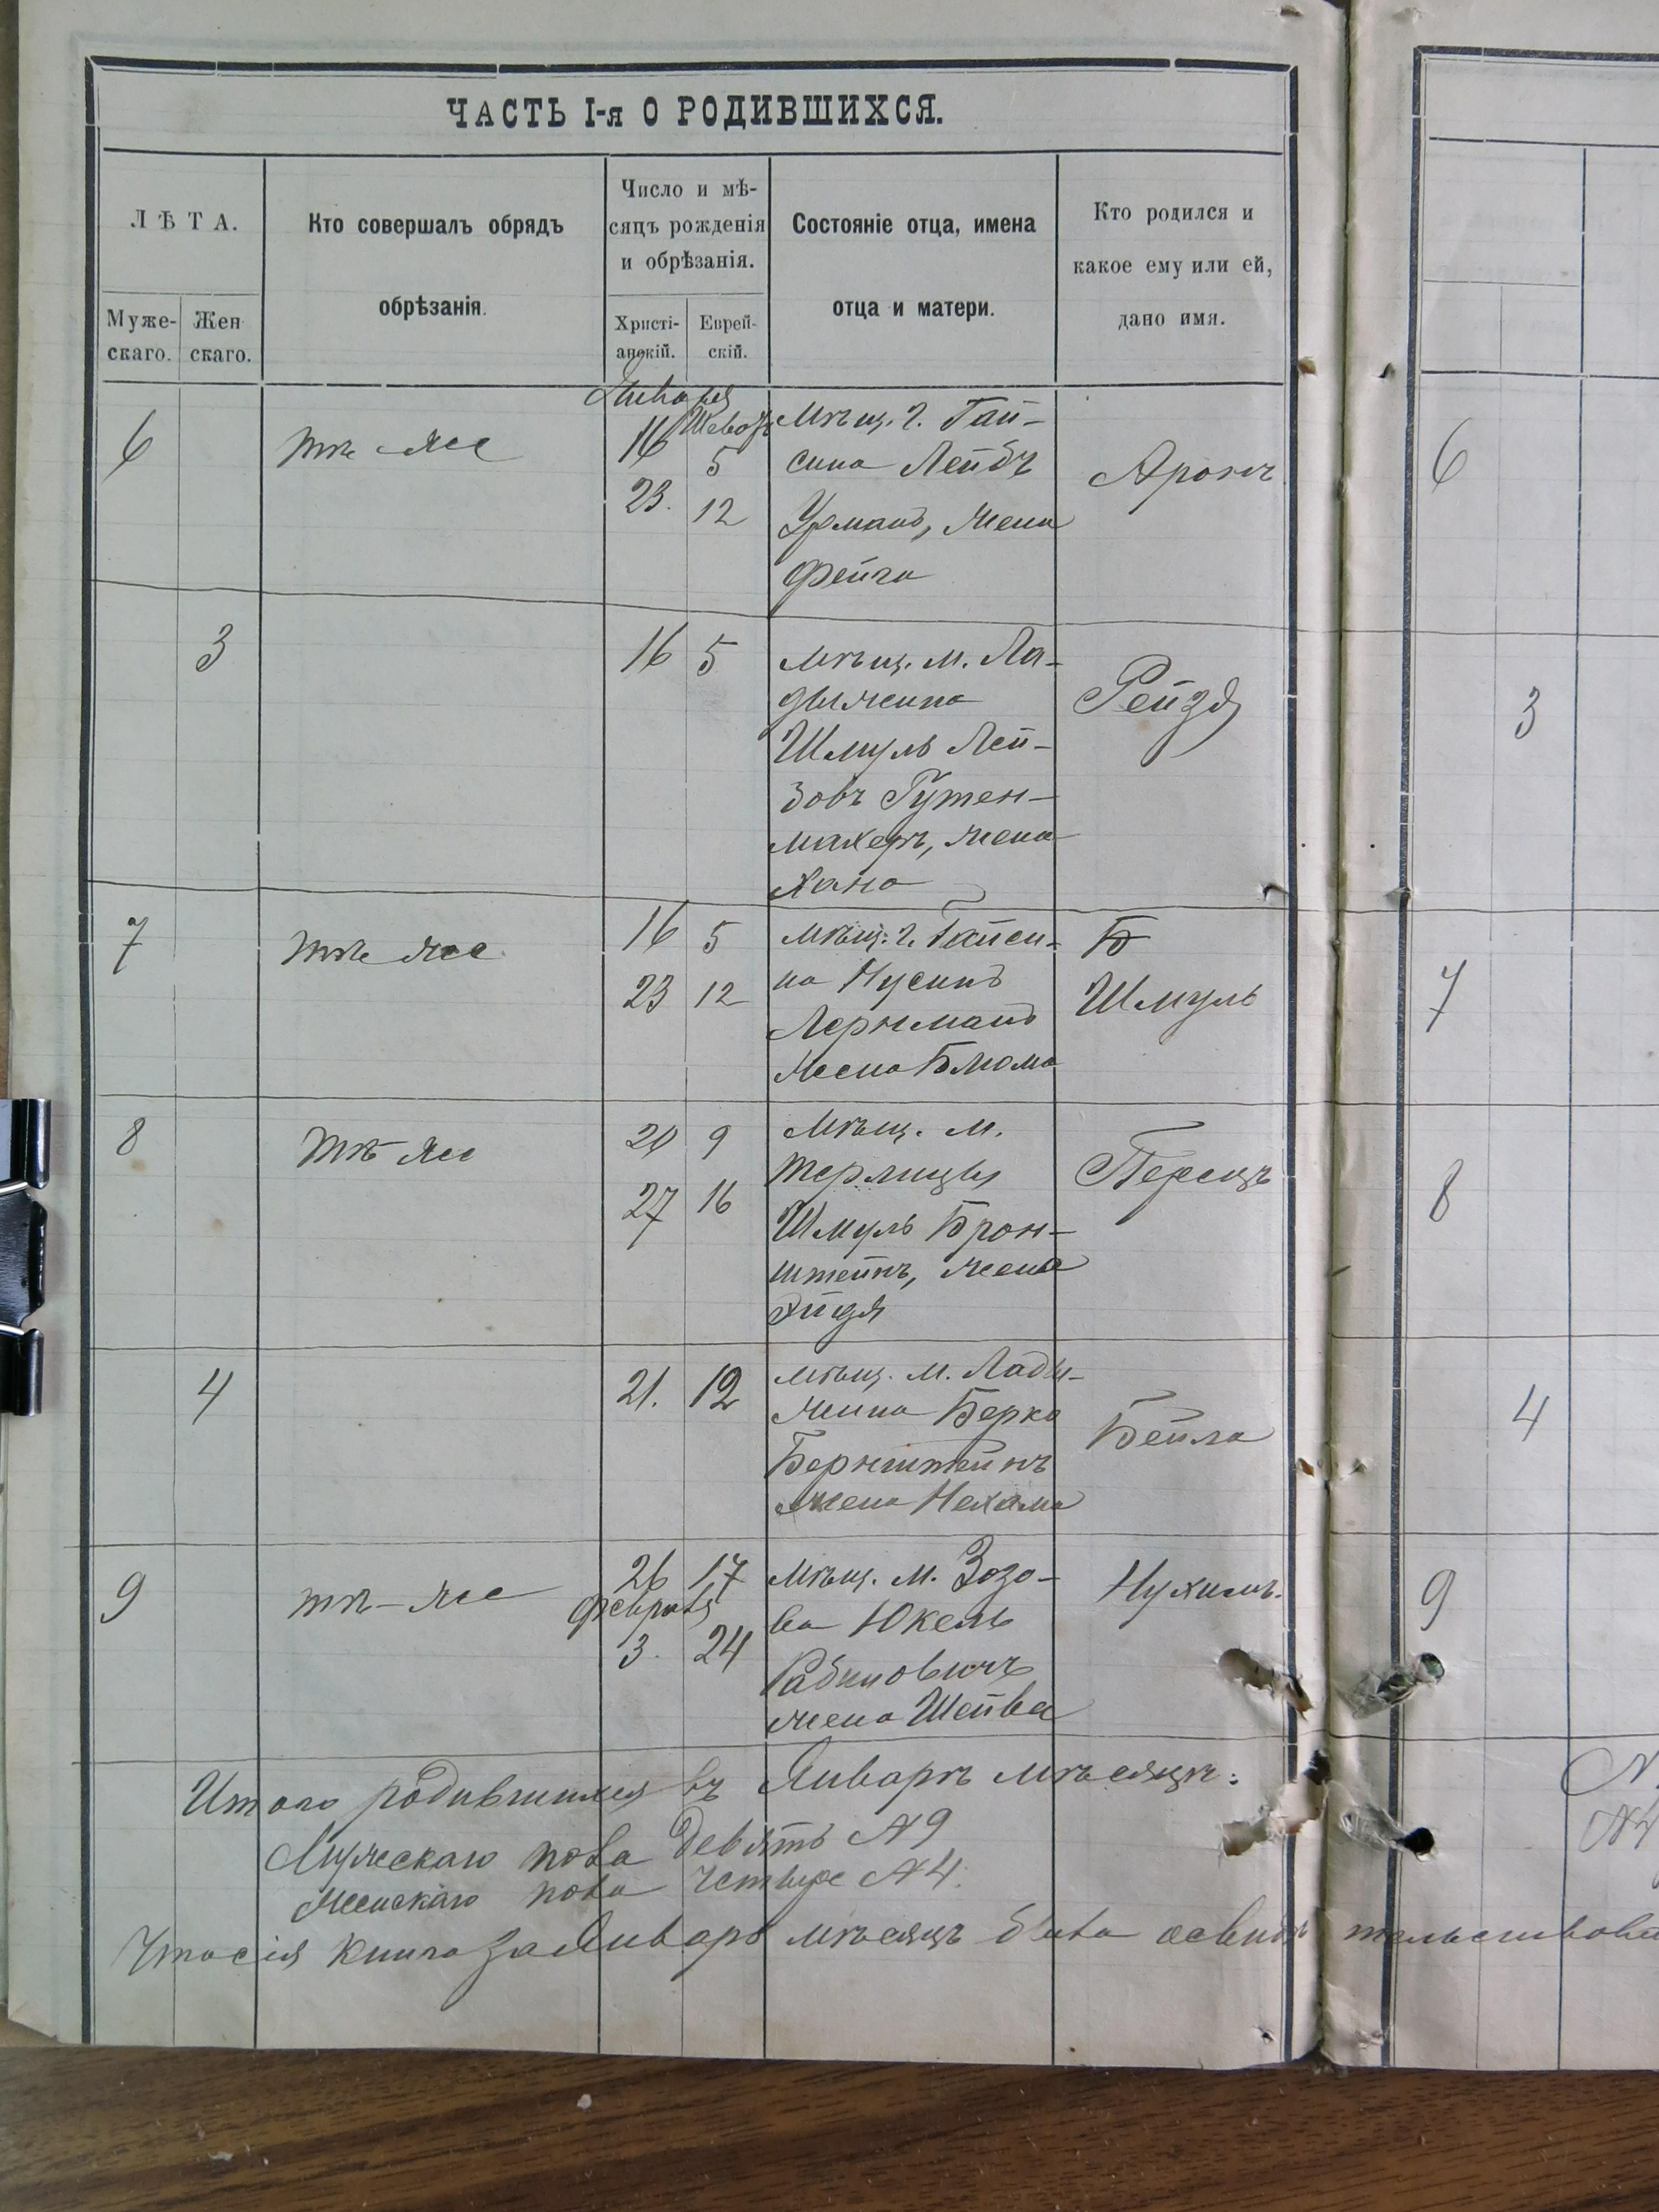 ЧАСТЬ I-я О РОДИВШИХСЯ.
ЛѢТА.
Муже-
скаго.
Жен
скаго.
Кто совершалъ обрядъ
обрѣзанія.
Число и мѣ-
сяцъ рожденія
и обрѣзанія.
Христі-
анскій.
Еврей-
скій.
Состояніе отца, имена
отца и матери.
Кто родился и
какое ему или ей,
дано имя.
Января
Шеватъ
6
тѣ-же
16
5
23.
12
Мѣщ. г. Гай-
сина Лейбъ
Урманъ, жена
Фейга
Аронъ
6
3
16
5
мѣщ. м. Ла-
дыжина
Шмуль Лей-
зовъ Гутен-
махеръ, жена
Хана
Рейзя
3
7
тѣ же
16
5
23
12
мѣщ. г. Гайси-
на Нусинъ
Лернманъ
жена Блюма
Б
Шмуль
7
8
тѣ-же
20
9
27
16
Мѣщ. м.
Терлицы
Шмуль Брон-
штейнъ, жена
Эйдя
Перецъ
8
4
21.
12
мѣщ. м. Лады-
жина Берко
Бернштейнъ
жена Нехама
Бейла
4
9
тѣ-же
26
17
Февраля
3.
24
Мѣщ. м. Зозо-
ва Юкель
Рабиновичъ
жена Шейва
Нухимъ.
9
Итого родившихся въ Январѣ мѣсяцѣ:
Мужескаго пола девять №9
Женскаго пола четыре №4.
Что сія книга за Январь мѣсяцъ была освидѣтельствова